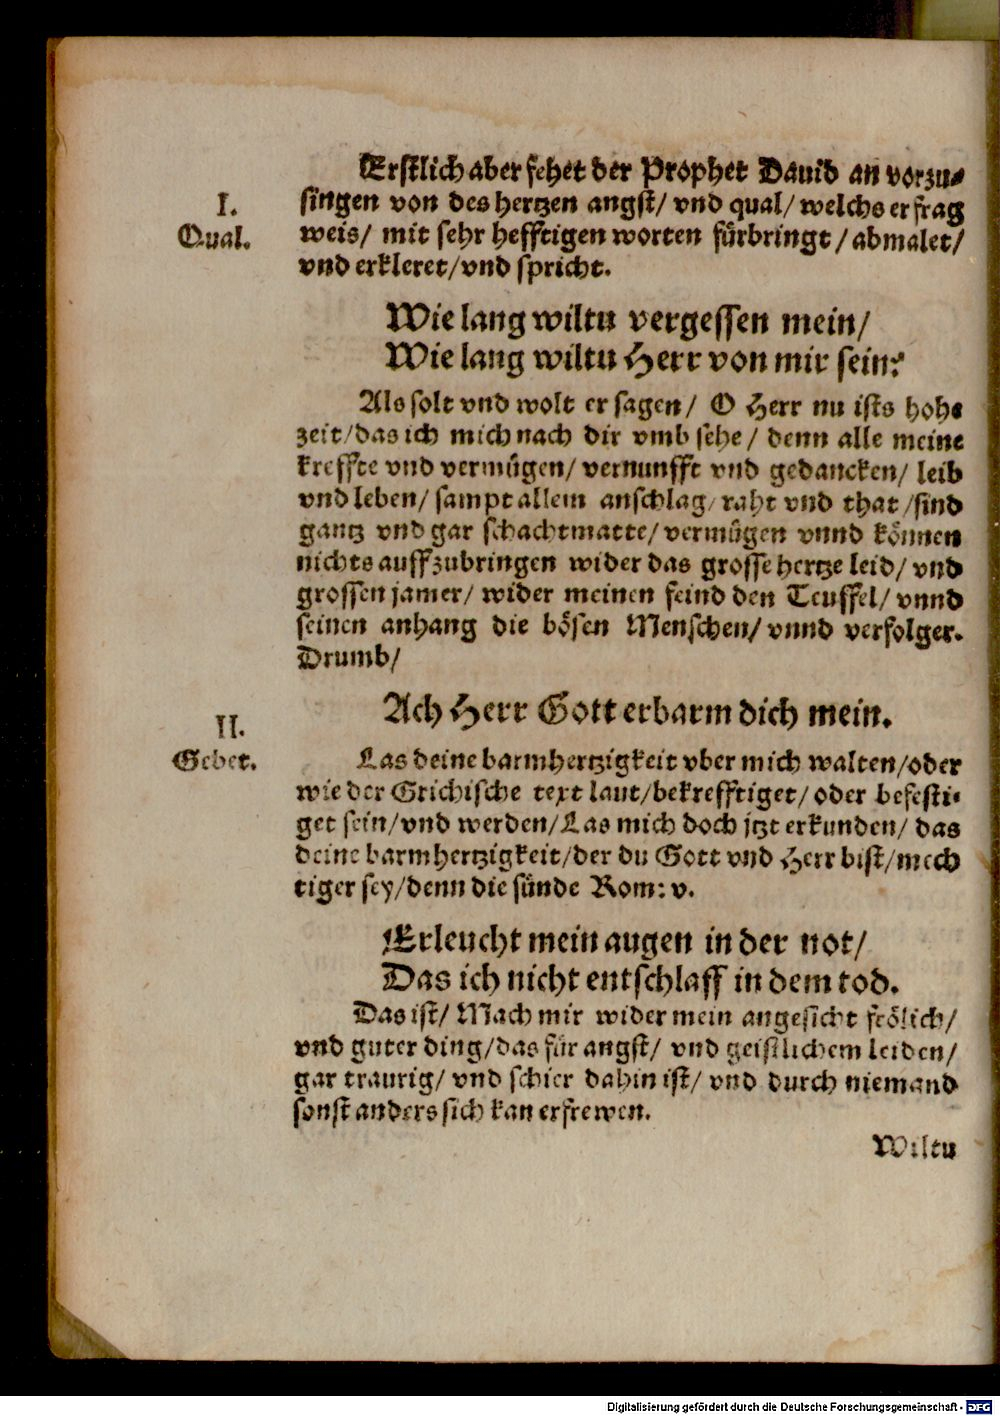 Erstlich aber fehet der Prophet Dauid an vorzu⸗
I.
singen von des hertzen angst/ vnd qual/ welchs er frag
Qual.
weis/ mit sehr hefftigen worten fürbringt/ abmalet/
vnd erkleret/ vnd spricht.
Wie lang wiltu vergessen mein/
Wie lang wiltu Herr von mir sein?
Als solt vnd wolt er sagen/ O Herr nu ists hohe
zeit/ das ich mich nach dir vmb sehe/ denn alle meine
kreffte vnd vermügen/ vernunfft vnd gedancken/ leib
vnd leben/ sampt allem anschlag/ raht vnd that/ sind
gantz vnd gar schachtmatte/ vermügen vnnd können
nichts auffzubringen wider das grosse hertze leid/ vnd
grossen jamer/ wider meinen feind den Teuffel/ vnnd
seinen anhang die bösen Menschen/ vnnd verfolger.
Drumb/
Ach Herr Gott erbarm dich mein.
II.
Gebet.
Las deine barmhertzigkeit vber mich walten/ oder
wie der Grichische text laut/ bekrefftiget/ oder befesti⸗
get sein/ vnd werden/ Las mich doch jtzt erkunden/ das
deine barmhertzigkeit/ der du Gott vnd Herr bist/ mech
tiger sey/ denn die sünde Rom: v.
Erleucht mein augen in der not/
Das ich nicht entschlaff in dem tod.
Das ist/ Mach mir wider mein angesicht frölich/
vnd guter ding/ das für angst/ vnd geistlichem leiden/
gar traurig/ vnd schier dahin ist/ vnd durch niemand
sonst anders sich kan erfrewen.
Wiltu
Digitalisierung gefördert durch die Deutsche Forschungsgemeinschaft - DFG